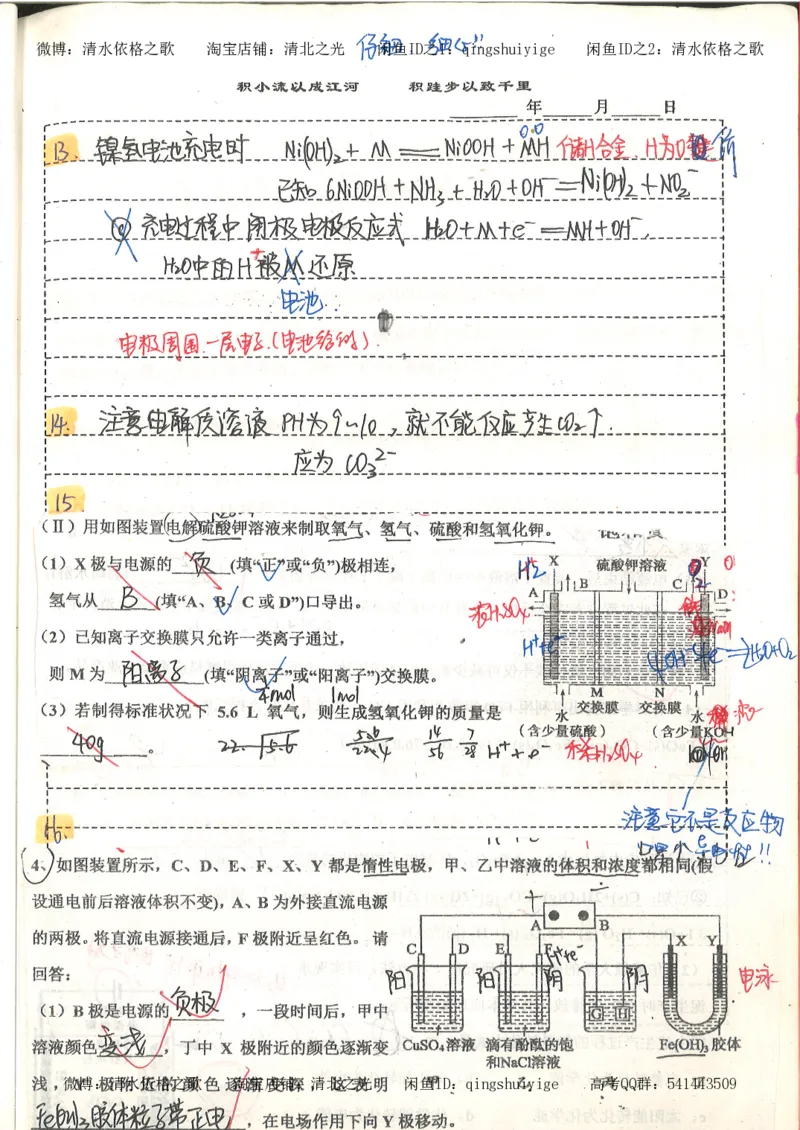 微博：清水依格之歌 淘宝店铺：清北之光 闲鱼ID之1：qingshuiyige 闲鱼ID之2：清水依格之歌
积小流以成江河 积跬步以致千里
年 月 日
13. 镍氢电池充电时 Ni(OH)₂ + M = NiOOH + MH 储H合金 H为0价
已知 6NiOOH + NH₃ + H₂O + OH⁻ = Ni(OH)₂ + NO₂⁻
充电过程中阴极电极反应式 H₂O + M + e⁻ = MH + OH⁻,
H₂O中的H⁺被M还原
电池.
电极周围一层电子.(电池给的)
14. 注意电解质溶液 PH为9~10，就不能反应产生CO₂↑.
应为 CO₃²⁻
15
（Ⅱ）用如图装置电解硫酸钾溶液来制取氧气、氢气、硫酸和氢氧化钾。
（1）X极与电源的 负 (填“正”或“负”)极相连，
氢气从 B (填“A、B、C或D”)口导出。
（2）已知离子交换膜只允许一类离子通过，
则M为 阳离子 (填“阴离子”或“阳离子”)交换膜。
（3）若制得标准状况下 5.6 L 氧气，则生成氢氧化钾的质量是
40g 。
¼mol 1mol
X 硫酸钾溶液 Y
A B C D
M N
水 交换膜 交换膜 水
(含少量硫酸) (含少量KOH)
稀H₂SO₄
注意它不是反应物
16.
4、如图装置所示，C、D、E、F、X、Y都是惰性电极，甲、乙中溶液的体积和浓度都相同(假
设通电前后溶液体积不变)，A、B为外接直流电源
的两极。将直流电源接通后，F极附近呈红色。请
回答：
（1）B极是电源的 负极 ，一段时间后，甲中
溶液颜色 变浅 ，丁中X极附近的颜色逐渐变
浅，Y极附近的颜色逐渐变深，这表明
Fe(OH)₃胶体粒子带正电 ，在电场作用下向Y极移动。
+ −
A B
C D E F G H X Y
阳 阳 阴 阴 电泳
H⁺+e⁻
CuSO₄溶液 滴有酚酞的饱和NaCl溶液 Fe(OH)₃胶体
微博：清水依格之歌 淘宝店铺：清北之光 闲鱼ID：qingshuiyige 高考QQ群：541443509